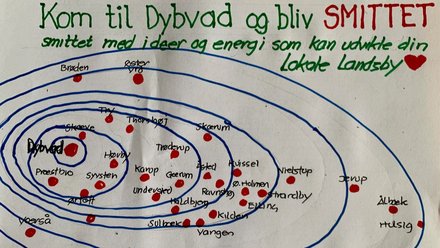 Kom til Dybvad og bliv SMITTET
smittet med ideer og energi som kan udvikle din
Lokale Landsby
Brønden Øster Vrå
Try Thorshøj
Skæve Skærum
Dybvad Tæderup
Hørby Karup Åsted Kvissel
Præstbro Syvsten Gærum Ravnshøj Ø. Holmen Nielstrup Jerup
Understed Strandby
Haldbjerg Elling Ålbæk
Voerså Sulbæk Kilden Hulsig
Vangen